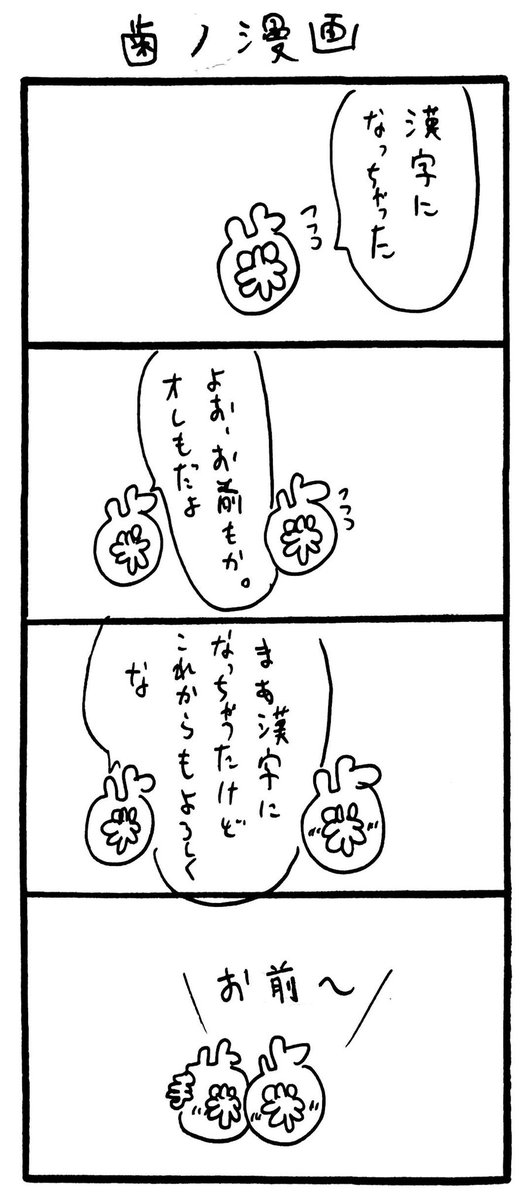 歯ノ漫画
漢字に
なっちゃった
よお、お前もか。
オレもだよ
まあ漢字に
なっちゃったけど
これからもよろしく
な
お前〜